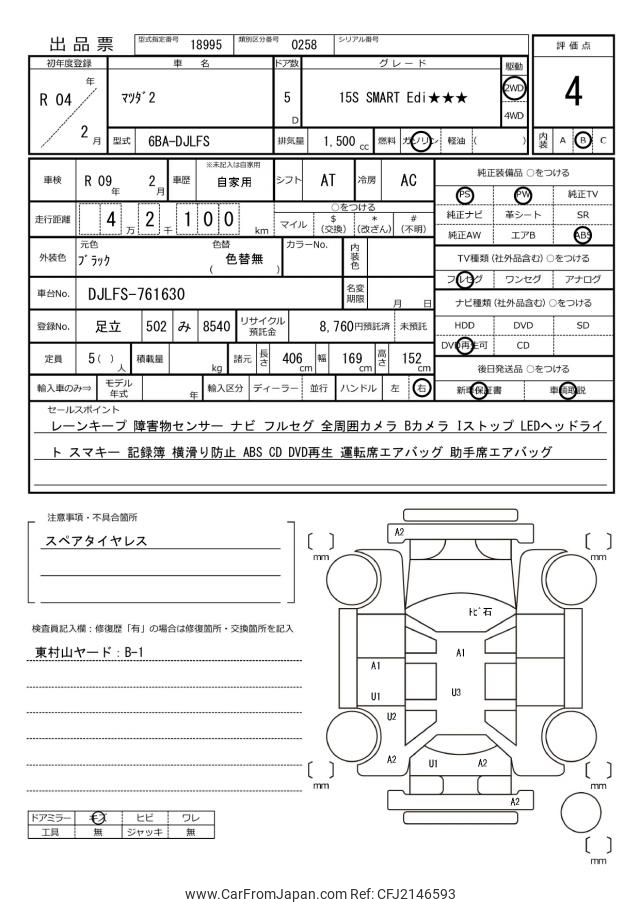 出品票 型式指定番号 18995 類別区分番号 0258 シリアル番号
評価点
4
内装 A B C
初年度登録 車名 ドア数 グレード 駆動
R 04 年 2 月
マツダ2 5 D 15S SMART Edi★★★ 2WD 4WD
型式 6BA-DJLFS 排気量 1,500 cc 燃料 ガソリン 軽油 ( )
車検 R 09 年 2 月 車歴 ※未記入は自家用 自家用 シフト AT 冷房 AC
走行距離 4 万 2 千 1 0 0 km
○をつける
マイル $ (交換) * (改ざん) # (不明)
外装色 元色 ブラック 色替 ( 色替無 ) カラーNo. 内装色
車台No. DJLFS-761630 名変期限 月 日
登録No. 足立 502 み 8540 リサイクル預託金 8,760円預託済 未預託
定員 5 ( ) 人 積載量 kg 諸元 長さ 406 cm 幅 169 cm 高さ 152 cm
輸入車のみ⇒ モデル年式 年 輸入区分 ディーラー 並行 ハンドル 左 右
純正装備品 ○をつける
PS PW 純正TV
純正ナビ 革シート SR
純正AW エアB ABS
TV種類 (社外品含む) ○をつける
フルセグ ワンセグ アナログ
ナビ種類 (社外品含む) ○をつける
HDD DVD SD
DVD再生可 CD
後日発送品 ○をつける
新車保証書 車輌取説
セールスポイント
レーンキープ 障害物センサー ナビ フルセグ 全周囲カメラ Bカメラ Iストップ LEDヘッドライ
ト スマキー 記録簿 横滑り防止 ABS CD DVD再生 運転席エアバッグ 助手席エアバッグ
注意事項・不具合箇所
スペアタイヤレス
検査員記入欄：修復歴「有」の場合は修復箇所・交換箇所を記入
東村山ヤード：B-1
ドアミラー キズ ヒビ ワレ
工具 無 ジャッキ 無
A2
mm
mm
トビ石
A1
A1
U1
U3
U2
A2
U1
A2
mm
mm
A2
mm
www.CarFromJapan.com Ref: CFJ2146593